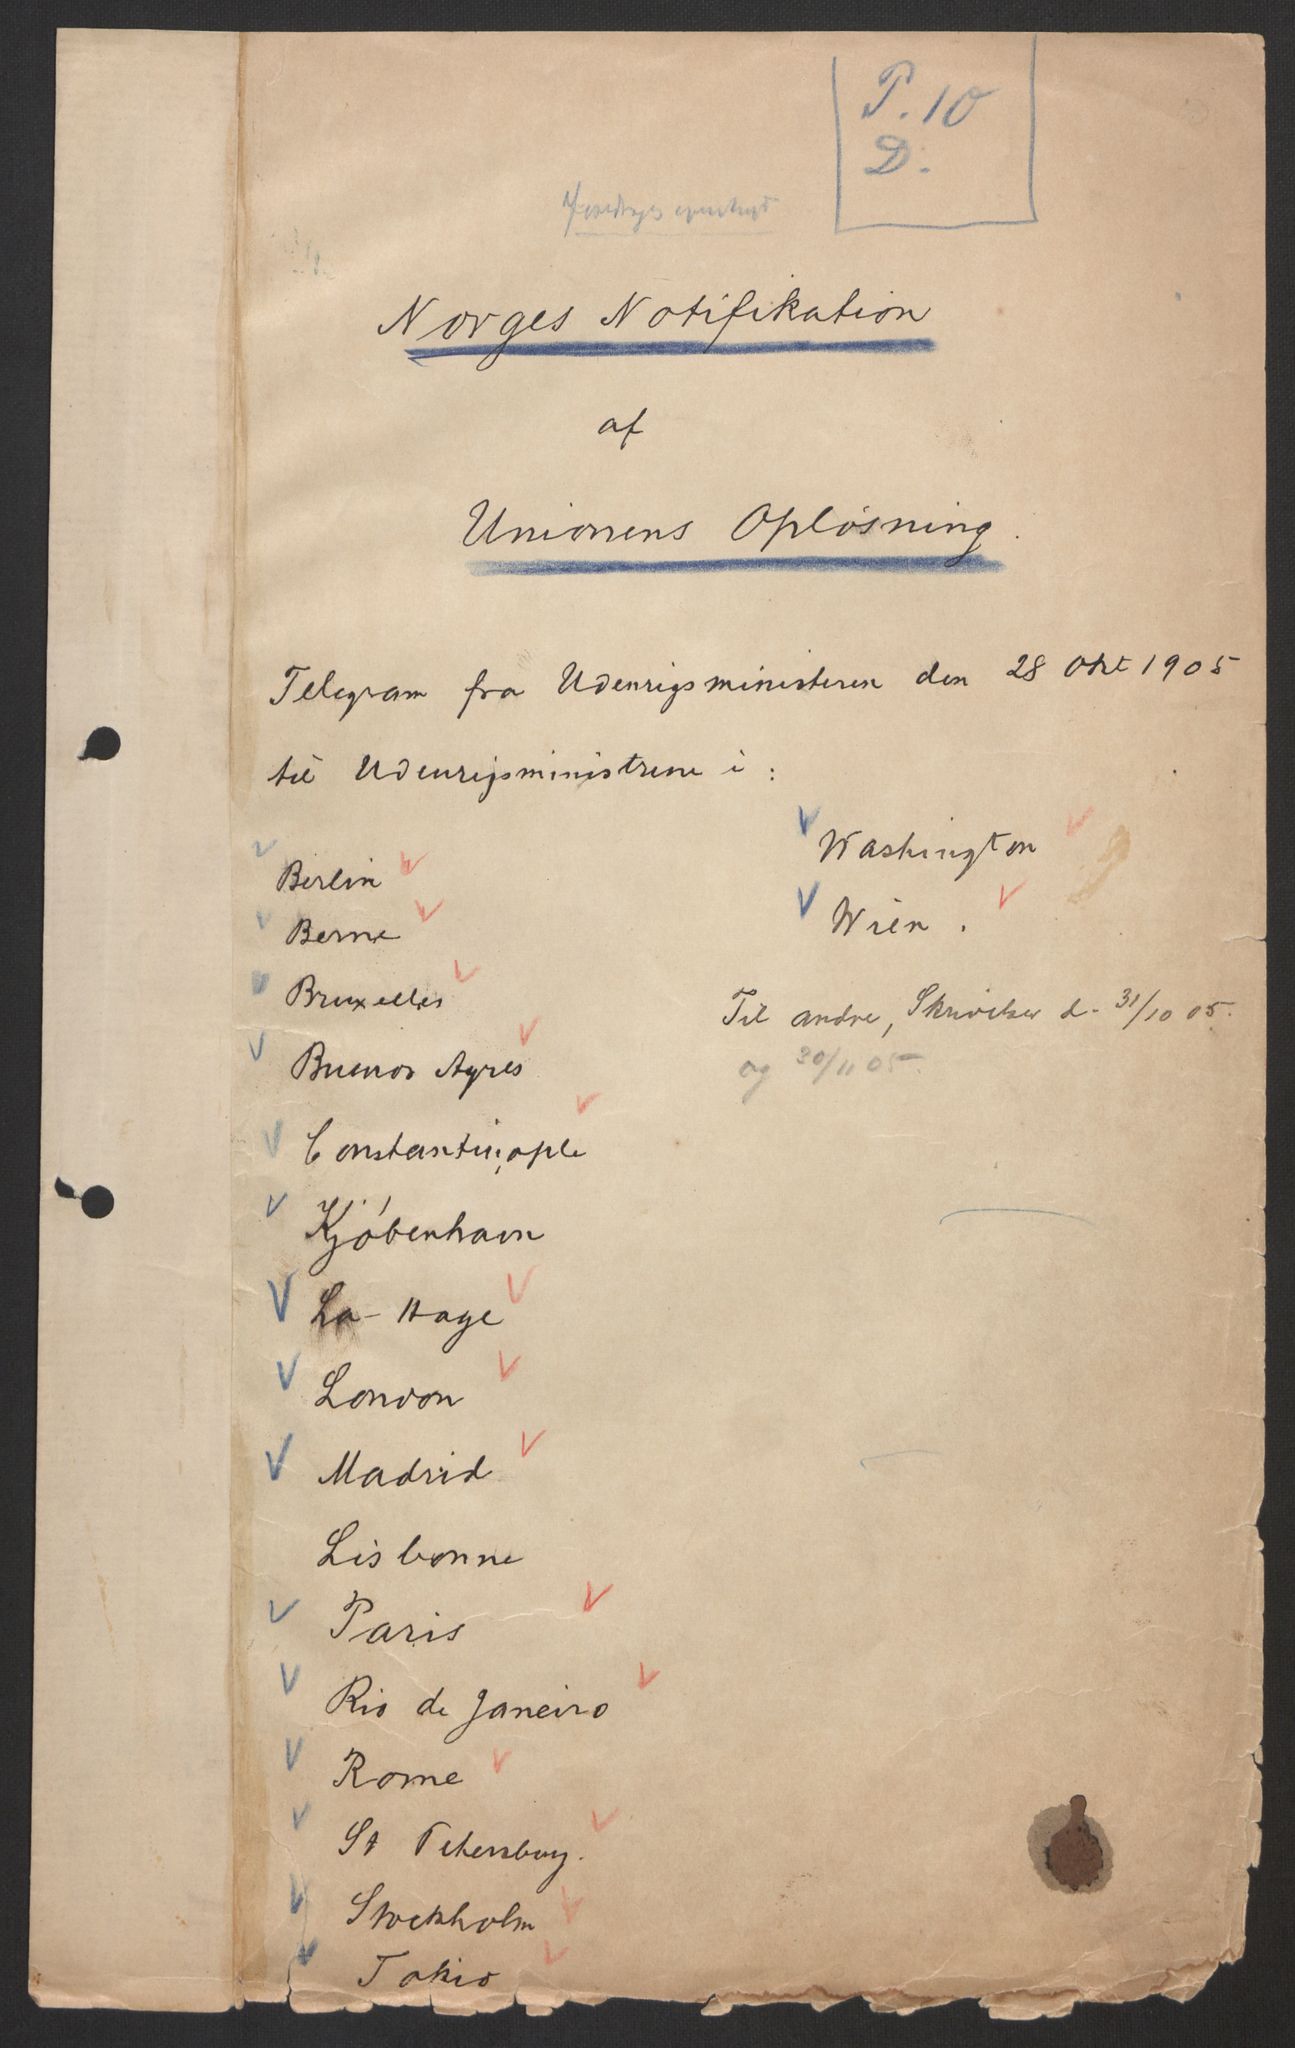 P. 10
D.
Norges Notifikation
af
Unionens Opløsning.
Telegram fra Udenrigsministeren den 28 Okt 1905
til Udenrigsministrene i :
Berlin
Berne
Bruxelles
Buenos Ayres
Constantinople
Kjøbenhavn
La Haye
London
Madrid
Lisbonne
Paris
Rio de Janeiro
Rome
St Petersburg.
Stockholm
Tokio
Washington
Wien .
Til andre, Skrivelser d. 31/10 05.
og 20/11 05.